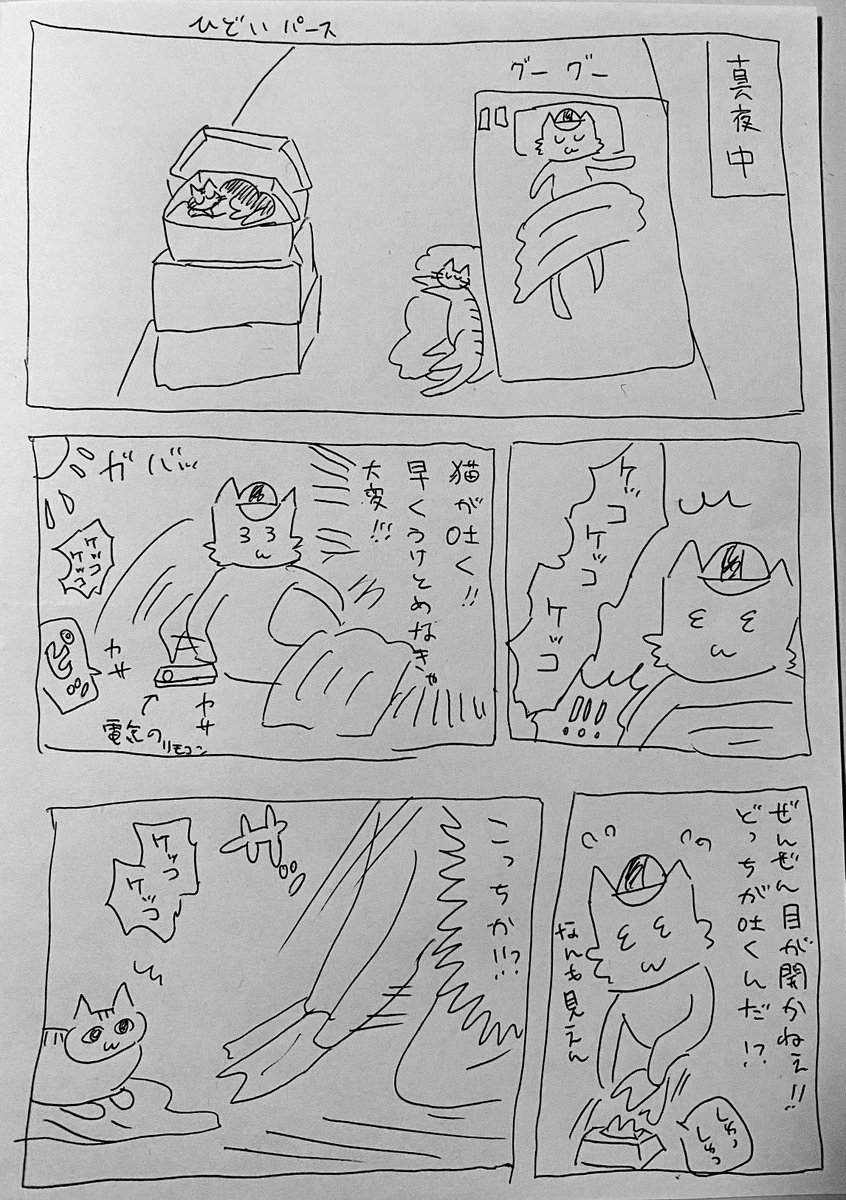 ひどいパース
真夜中
グーグー
ケッコ
ケッコ
ケッコ
猫が吐く!!
早くうけとめなきゃ
大変!!!
ガバッ
ケッコ
ケッコ
カサ
カサ
電気の
リモコン
ぜんぜん目が開かねぇ!!
どっちが吐くんだ!?
なんも見えん
しゅっ
しゅっ
こっちか!!?
サッ
ケッコ
ケッコ